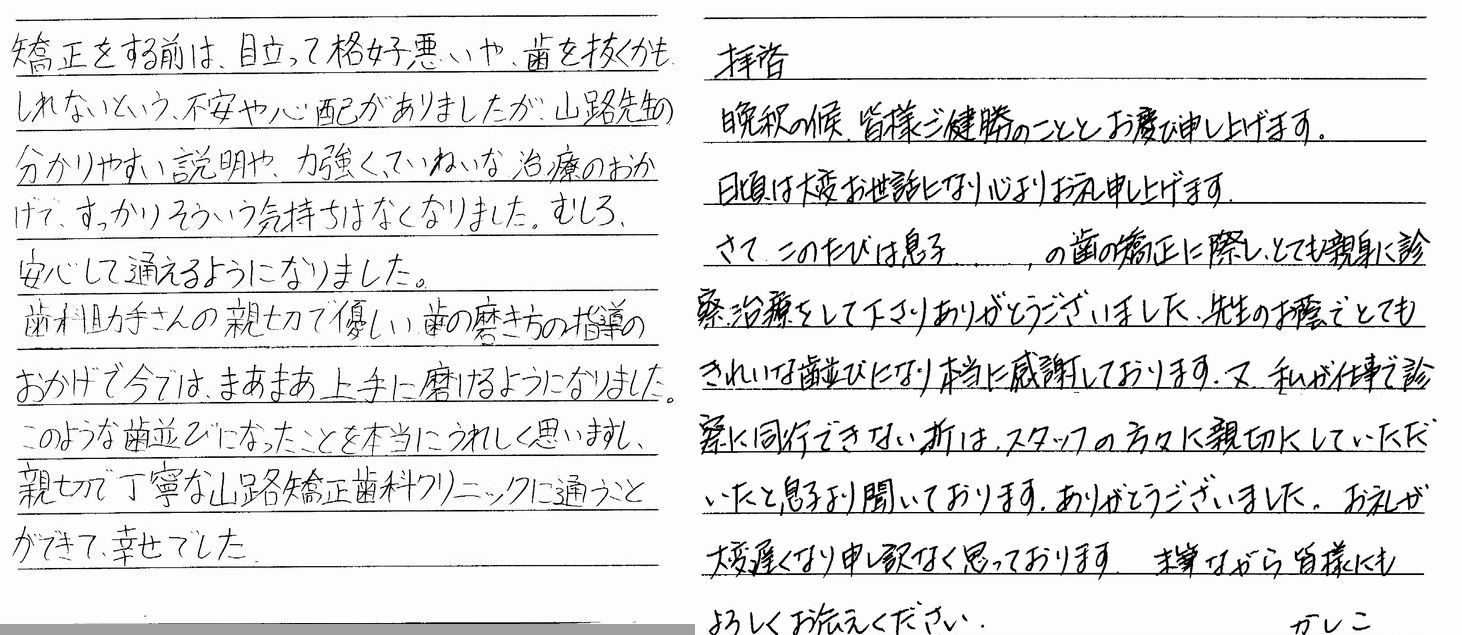 矯正をする前は、目立って格好悪いや、歯を抜くかも
しれないという、不安や心配がありましたが、山路先生の
分かりやすい説明や、力強く、ていねいな治療のおか
げで、すっかりそういう気持ちはなくなりました。むしろ、
安心して通えるようになりました。
歯科助手さんの親切で優しい歯の磨き方の指導の
おかげで今では、まあまあ上手に磨けるようになりました。
このような歯並びになったことを本当にうれしく思いますし、
親切で丁寧な山路矯正歯科クリニックに通うこと
ができて、幸せでした。
拝啓
晩秋の候、皆様ご健勝のことと お慶び申し上げます。
日頃は大変お世話になり心よりお礼申し上げます。
さて このたびは息子 の歯の矯正に際し、とても親身に診
察、治療をして下さりありがとうございました。先生のお蔭でとても
きれいな歯並びになり本当に感謝しております。又、私が仕事で診
察に同行できない折は、スタッフの方々に親切にしていただ
いたと息子より聞いております。ありがとうございました。お礼が
大変遅くなり申し訳なく思っております。 末筆ながら皆様にも
よろしくお伝えください。 かしこ